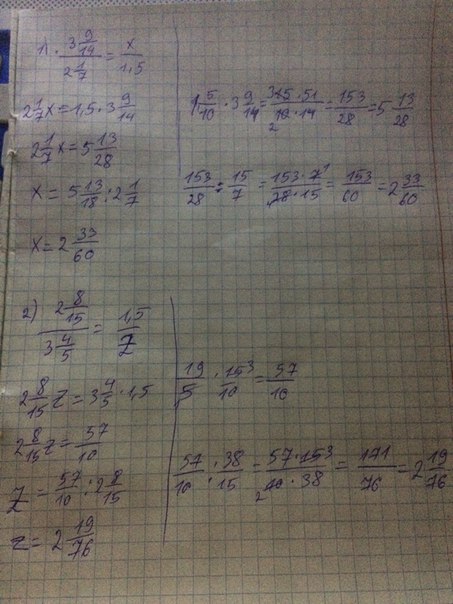 1) · 3 9/14 / 2 1/7 = x / 1,5
2 1/7 x = 1,5 · 3 9/14
2 1/7 x = 5 13/28
x = 5 13/18 : 2 1/7
x = 2 33/60
1 5/10 · 3 9/14 = 315 · 51 / 10 2 · 14 = 153/28 = 5 13/28
153/28 : 15/7 = 153 · 7 1 / 28 · 15 = 153/60 = 2 33/60
2) 2 8/15 / 3 4/5 = 1,5 / z
2 8/15 z = 3 4/5 · 1,5
2 8/15 z = 57/10
z = 57/10 : 2 8/15
z = 2 19/76
19/5 · 15 3 / 10 = 57/10
57/10 : 38/15 = 57 · 15 3 / 2 10 · 38 = 171/76 = 2 19/76